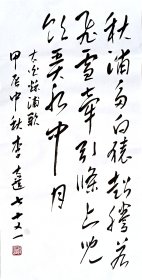 秋浦多白猿超腾若
飞雪牵引条上儿
饮弄水中月
太白秋浦歌
甲辰中秋李
七十又一